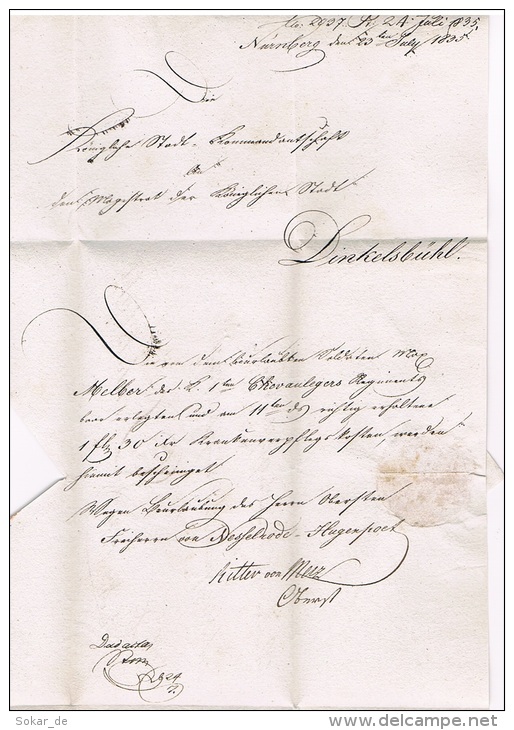 No: 2937. 24 Juli 1835.
Nürnberg den 23ten July 1835.
Die
Königliche Stadt-Kommandantschaft
An
den Magistrat der Königlichen Stadt
Dinkelsbühl.
Die von dem beurlaubten Soldaten Max
Melber des k. 1ten Chevaulegers Regiments
baar erlegten und am 11ten ds richtig erhaltene
1 fl 30 Krankenverpflegskosten, werden
hiemit bescheiniget
Wegen Beurlaubung des Herrn Obersten
Freiherrn von Nesselrode-Hugenpoet
Ritter von Merz
Oberst
Sokar_de
delcampe.net